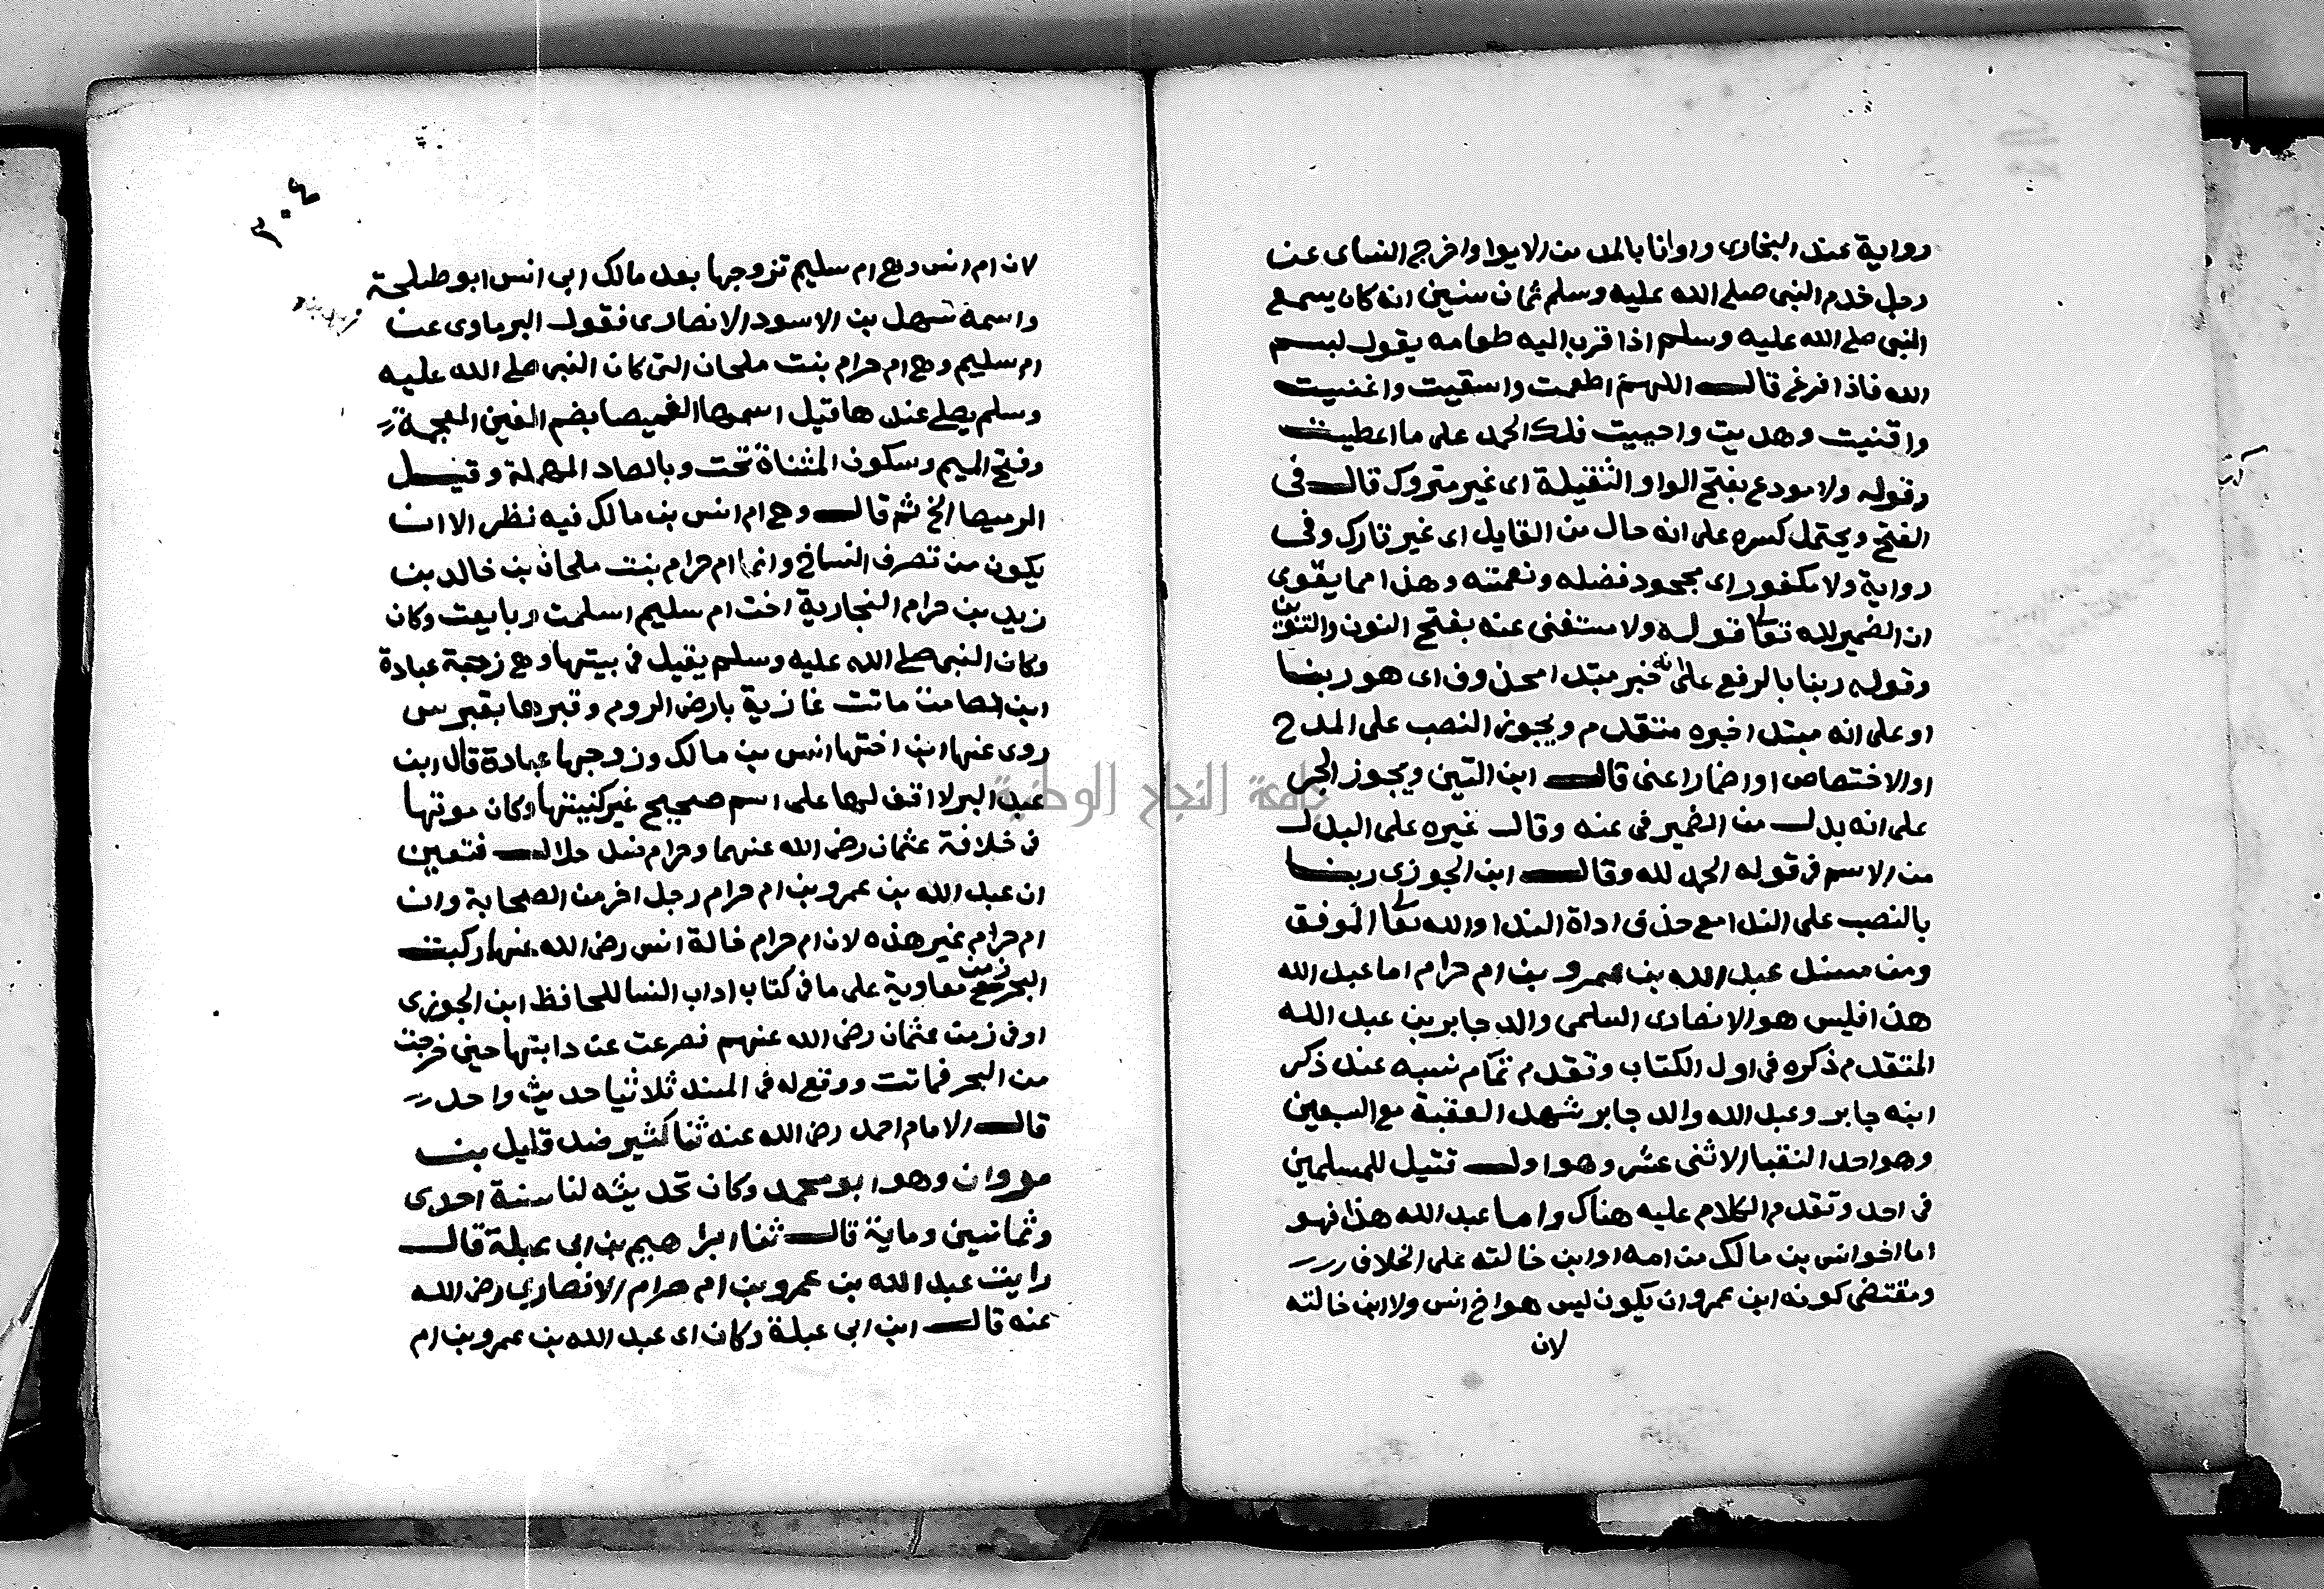 رواية عند البخارى واوانا بالمد من الايوا واخرج النساى عن
رجل خدم النبى صلى الله عليه وسلم ثمان سنين انه كان يسمع
النبى صلى الله عليه وسلم اذا قرب اليه طعامه يقول بسم
الله فاذا فرغ قال اللهم اطعمت واسقيت واغنيت
واقنيت وهديت واحييت فلك الحمد على ما اعطيت
وقوله ولا مودع بفتح الواو الثقيلة اى غير متروك قال فى
الفتح ويحتمل كسره على انه حال من القايل اى غير تارك وفى
رواية ولا مكفور اى مجحود فضله ونعمته وهذا مما يقوى
ان الضمير لله تعالى قوله ولا مستغنى عنه بفتح النون والتنوين
وقوله ربنا بالرفع على انه خبر مبتدا محذوف اى هو ربنا
او على انه مبتدا خبره متقدم ويجوز النصب على المدح
او الاختصاص او اضمار اعنى قال ابن التين ويجوز الجر
على انه بدل من الضمير فى عنه وقال غيره على البدل
من الاسم فى قوله الحمد لله وقال ابن الجوزى ربنا
بالنصب على الندا مع حذف اداة الندا والله تعالى الموفق
ومن مسند عبد الله بن عمرو بن ام حرام اما عبد الله
هذا فليس هو الانصارى السلمى والد جابر بن عبد الله
المتقدم ذكره فى اول الكتاب وتقدم تمام نسبه عند ذكر
ابنه جابر وعبد الله والد جابر شهد العقبة مع السبعين
وهو احد النقبا الاثنى عشر وهو اول قتيل للمسلمين
فى احد وتقدم الكلام عليه هناك واما عبد الله هذا فهو
اما اخو انس بن مالك من امه او ابن خالته على الخلاف
ومقتضى كونه ابن عمرو ان يكون ليس هو اخ انس ولا ابن خالته
لان
٣٠٤
لان ام انس وهى ام سليم تزوجها بعد مالك ابى انس ابو طلحة
واسمه سهل بن الاسود الانصارى فقول البرماوى عن
ام سليم وهى ام حرام بنت ملحان التى كان النبى صلى الله عليه
وسلم يصلى عندها قيل اسمها الغميصا بضم الغين المعجمة
وفتح الميم وسكون المثناة تحت وبالصاد المهملة وقيل
الرميصا الخ ثم قال وهى ام انس بن مالك فيه نظر الا ان
يكون من تصرف النساخ وانما ام حرام بنت ملحان بن خالد بن
زيد بن حرام النجارية اخت ام سليم اسلمت وبايعت وكان
وكان النبى صلى الله عليه وسلم يقيل فى بيتها وهى زوجة عبادة
ابن الصامت ماتت غازية بارض الروم وقبرها بقبرس
روى عنها ابن اختها انس بن مالك وزوجها عبادة قال ابن
عبد البر لا اقف لها على اسم صحيح غير كنيتها وكان موتها
فى خلافة عثمان رضى الله عنهما وحرام ضد حلال فتعين
ان عبد الله بن عمرو بن ام حرام رجل اخر من الصحابة وان
ام حرام غير هذه لان ام حرام خالة انس رضى الله عنها ركبت
البحر زمن معاوية على ما فى كتاب اداب النسا للحافظ ابن الجوزى
او فى زمن عثمان رضى الله عنهم فصرعت عن دابتها حين خرجت
من البحر فماتت ووقع له فى المسند ثلاثيا حديث واحد
قال الامام احمد رضى الله عنه ثنا كثير ضد قليل بن
مروان وهو ابو محمد وكان تحديثه لنا سنة احدى
وثمانين وماية قال ثنا ابراهيم بن ابى عبلة قال
رايت عبد الله بن عمرو بن ام حرام الانصارى رضى الله
عنه قال ابن ابى عبلة وكان اى عبد الله بن عمرو بن ام
جامعة النجاح الوطنية